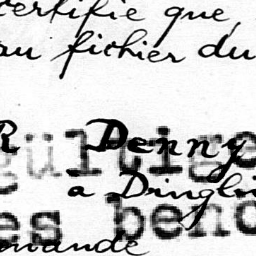 certifie que,
au fichier du
R Denny
gültige
a Dingli
es bend
mande